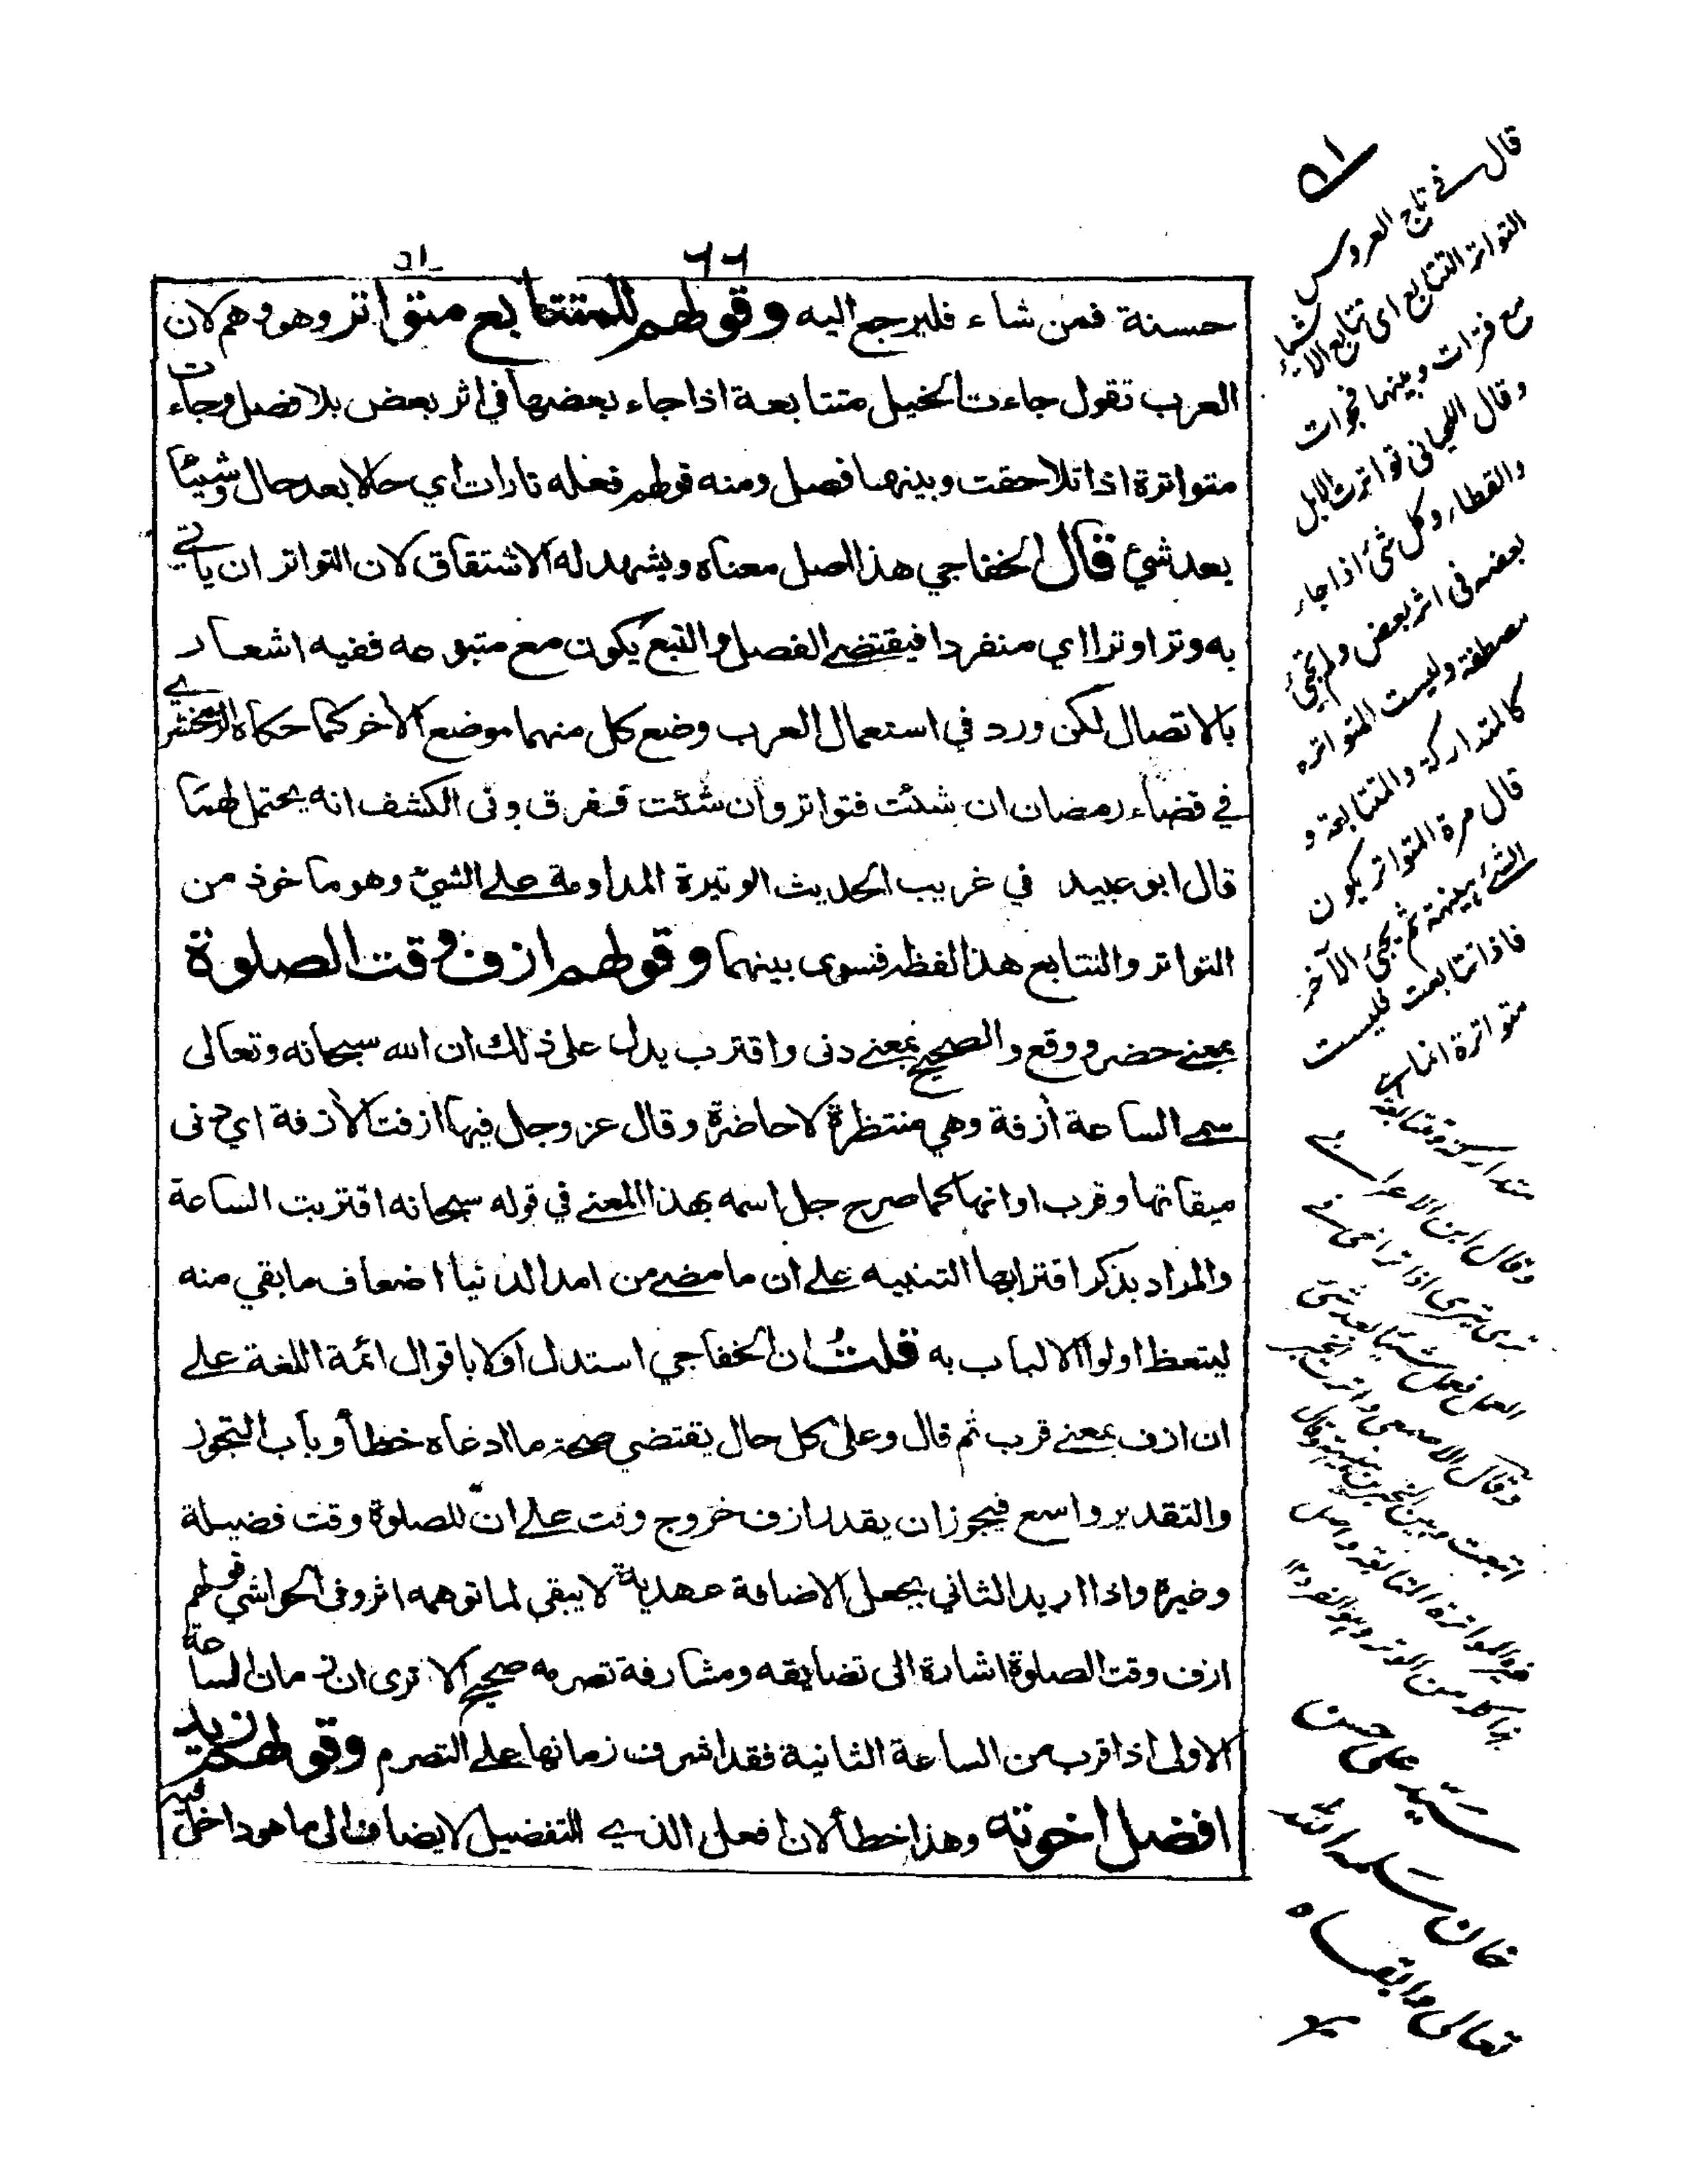 ٦٦
حسنة فمن شاء فليرجع اليه وقولهم للمتتابع متواتر وهو وهم لان
العرب تقول جاءت الخيل متتابعة اذا جاء بعضها في اثر بعض بلا فصل وجاءت
متواترة اذا تلاحقت وبينهما فصل ومنه قولهم فعله تارات اي حالا بعد حال وشيئا
بعد شئ قال الخفاجي هذا اصل معناه ويشهد له الاشتقاق لان التواتر ان ياتي
به وترا وترا اي منفردا فيقتضي الفصل والتبع يكون مع متبوعه ففيه اشعار
بالاتصال لكن ورد في استعمال العرب وضع كل منهما موضع الاخر كما حكاه الزمخشري
في قضاء رمضان ان شئت فتواتر وان شئت ففرق وفى الكشف انه يحتملهما
قال ابو عبيد في غريب الحديث الوتيرة المداومة على الشئ وهو ماخوذ من
التواتر والتتابع هذا لفظه فسوى بينهما وقولهم ازف وقت الصلوة
بمعنى حضر ووقع والصحيح بمعنى دنى واقترب يدل على ذلك ان الله سبحانه وتعالى
سمى الساعة ازفة وهي منتظرة لا حاضرة وقال عز وجل فيها ازفت الازفة اي دنى
ميقاتها وقرب اوانها كما صرح جل اسمه بهذا المعنى في قوله سبحانه اقتربت الساعة
والمراد بذكر اقترابها التنبيه على ان ما مضى من امد الدنيا اضعاف ما بقي منه
ليتعظ اولوا الالباب به قلت ان الخفاجي استدل اولا باقوال ائمة اللغة على
ان ازف بمعنى قرب ثم قال وعلى كل حال يقتضي صحة ما ادعاه خطأ وباب التجوز
والتقدير واسع فيجوز ان يقدر ازف خروج وقت على ان للصلوة وقت فضيلة
وغيره واذا اريد الثاني بجعل الاضافة عهدية لا يبقى لما توهمه اثر وفى الحواشي قولهم
ازف وقت الصلوة اشارة الى تضايقه ومشارفة تصرمه صحيح الا ترى ان زمان الساعة
الاولى اذا قرب من الساعة الثانية فقد اشرف زمانها على التصرم وقولهم زيد
افضل اخوته وهذا خطأ لان افعل الذي للتفضيل لا يضاف الى ما هو داخل فيه
قال في تاج العروس
التواتر التتابع اى تتابع الاشياء
مع فترات وبينهما فجوات
وقال اللحيانى تواترت الابل
والقطا وكل شئ اذا جاء
بعضه فى اثر بعض ولم تجئ
مصطفة وليست المتواترة
كالمتداركة والمتتابعة و
قال مرة المتواتر يكون
الشئ هنيهة ثم يجئ الآخر
فاذا تتابعت فليست
متواترة انما هى
متداركة ومتتابعة
وقال ابن الاعرابي
ترى يترى اذا تراخى في
العمل فعمل شيئا بعد شئ
وقال الاصمعى واترت الخبر
اتبعت وبين الخبرين هنيهة وقال
غيره المواترة المتابعة واصل
هذا كله من الوتر وهو الفرد ١٢
سيد على حسن
خان سلمه الله
تعالى وابقاه